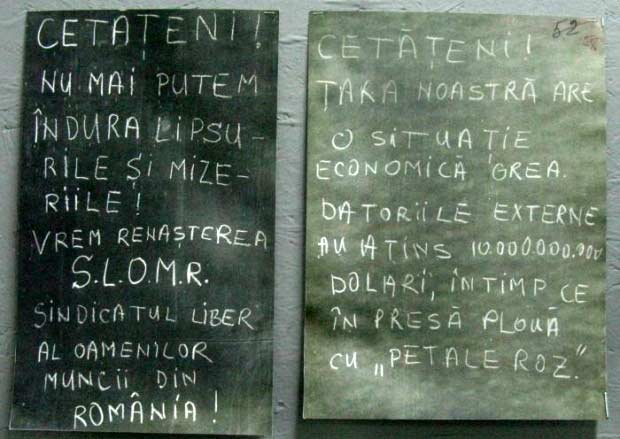 CETAȚENI!
NU MAI PUTEM
ÎNDURA LIPSU-
RILE ȘI MIZE-
RIILE!
VREM RENAȘTEREA
S.L.O.M.R.
SINDICATUL LIBER
AL OAMENILOR
MUNCII DIN
ROMÂNIA!
52
CETĂȚENI!
ȚARA NOASTRĂ ARE
O SITUAȚIE
ECONOMICĂ GREA.
DATORIILE EXTERNE
AU ATINS 10.000.000.000
DOLARI, ÎN TIMP CE
ÎN PRESĂ PLOUĂ
CU „PETALE ROZ."